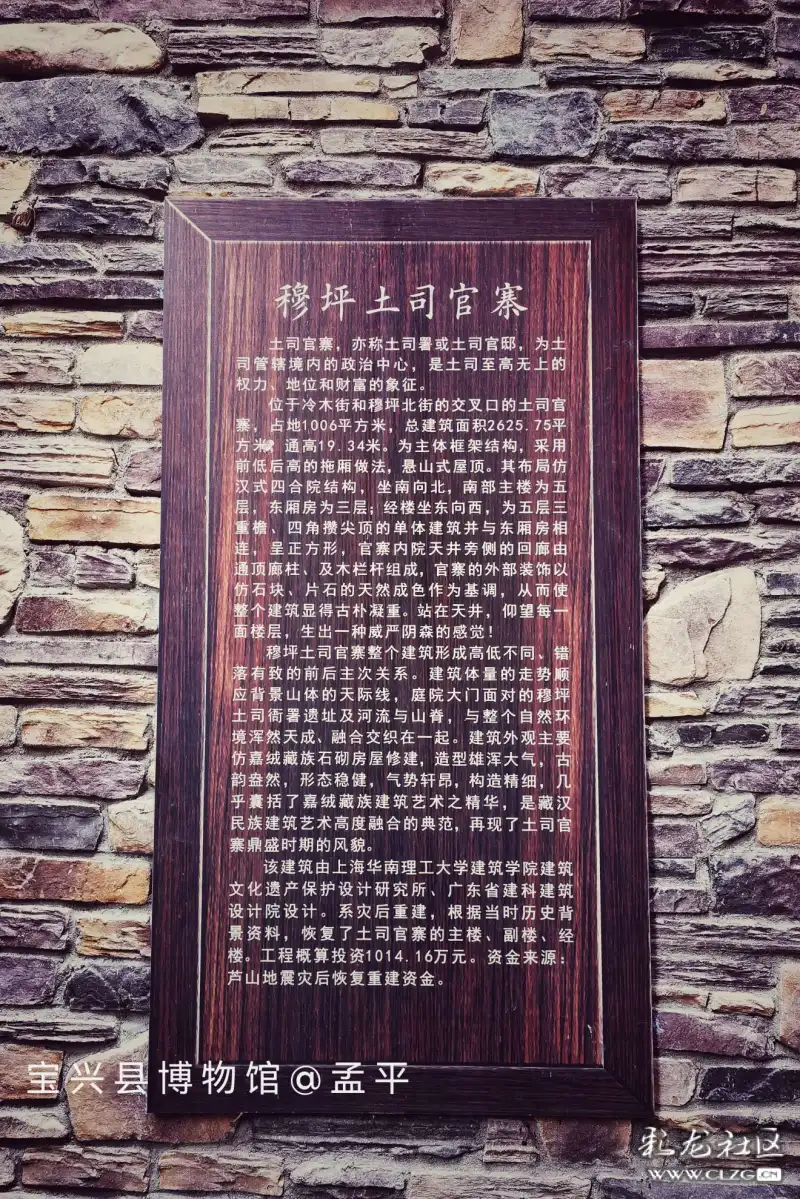 穆坪土司官寨
土司官寨，亦称土司署或土司官邸，为土
司管辖境内的政治中心，是土司至高无上的
权力、地位和财富的象征。
位于冷木街和穆坪北街的交叉口的土司官
寨，占地1006平方米，总建筑面积2625.75平
方米，通高19.34米。为主体框架结构，采用
前低后高的拖厢做法，悬山式屋顶。其布局仿
汉式四合院结构，坐南向北，南部主楼为五
层，东厢房为三层；经楼坐东向西，为五层三
重檐、四角攒尖顶的单体建筑并与东厢房相
连，呈正方形，官寨内院天井旁侧的回廊由
通顶廊柱、及木栏杆组成，官寨的外部装饰以
仿石块、片石的天然成色作为基调，从而使
整个建筑显得古朴凝重。站在天井，仰望每一
面楼层，生出一种威严阴森的感觉！
穆坪土司官寨整个建筑形成高低不同、错
落有致的前后主次关系。建筑体量的走势顺
应背景山体的天际线，庭院大门面对的穆坪
土司衙署遗址及河流与山脊，与整个自然环
境浑然天成、融合交织在一起。建筑外观主要
仿嘉绒藏族石砌房屋修建，造型雄浑大气，古
韵盎然，形态稳健，气势轩昂，构造精细，几
乎囊括了嘉绒藏族建筑艺术之精华，是藏汉
民族建筑艺术高度融合的典范，再现了土司官
寨鼎盛时期的风貌。
该建筑由上海华南理工大学建筑学院建筑
文化遗产保护设计研究所、广东省建科建筑
设计院设计。系灾后重建，根据当时历史背
景资料，恢复了土司官寨的主楼、副楼、经
楼。工程概算投资1014.16万元。资金来源：
芦山地震灾后恢复重建资金。
宝兴县博物馆@孟平
彩龙社区
WWW.CLZG.CN